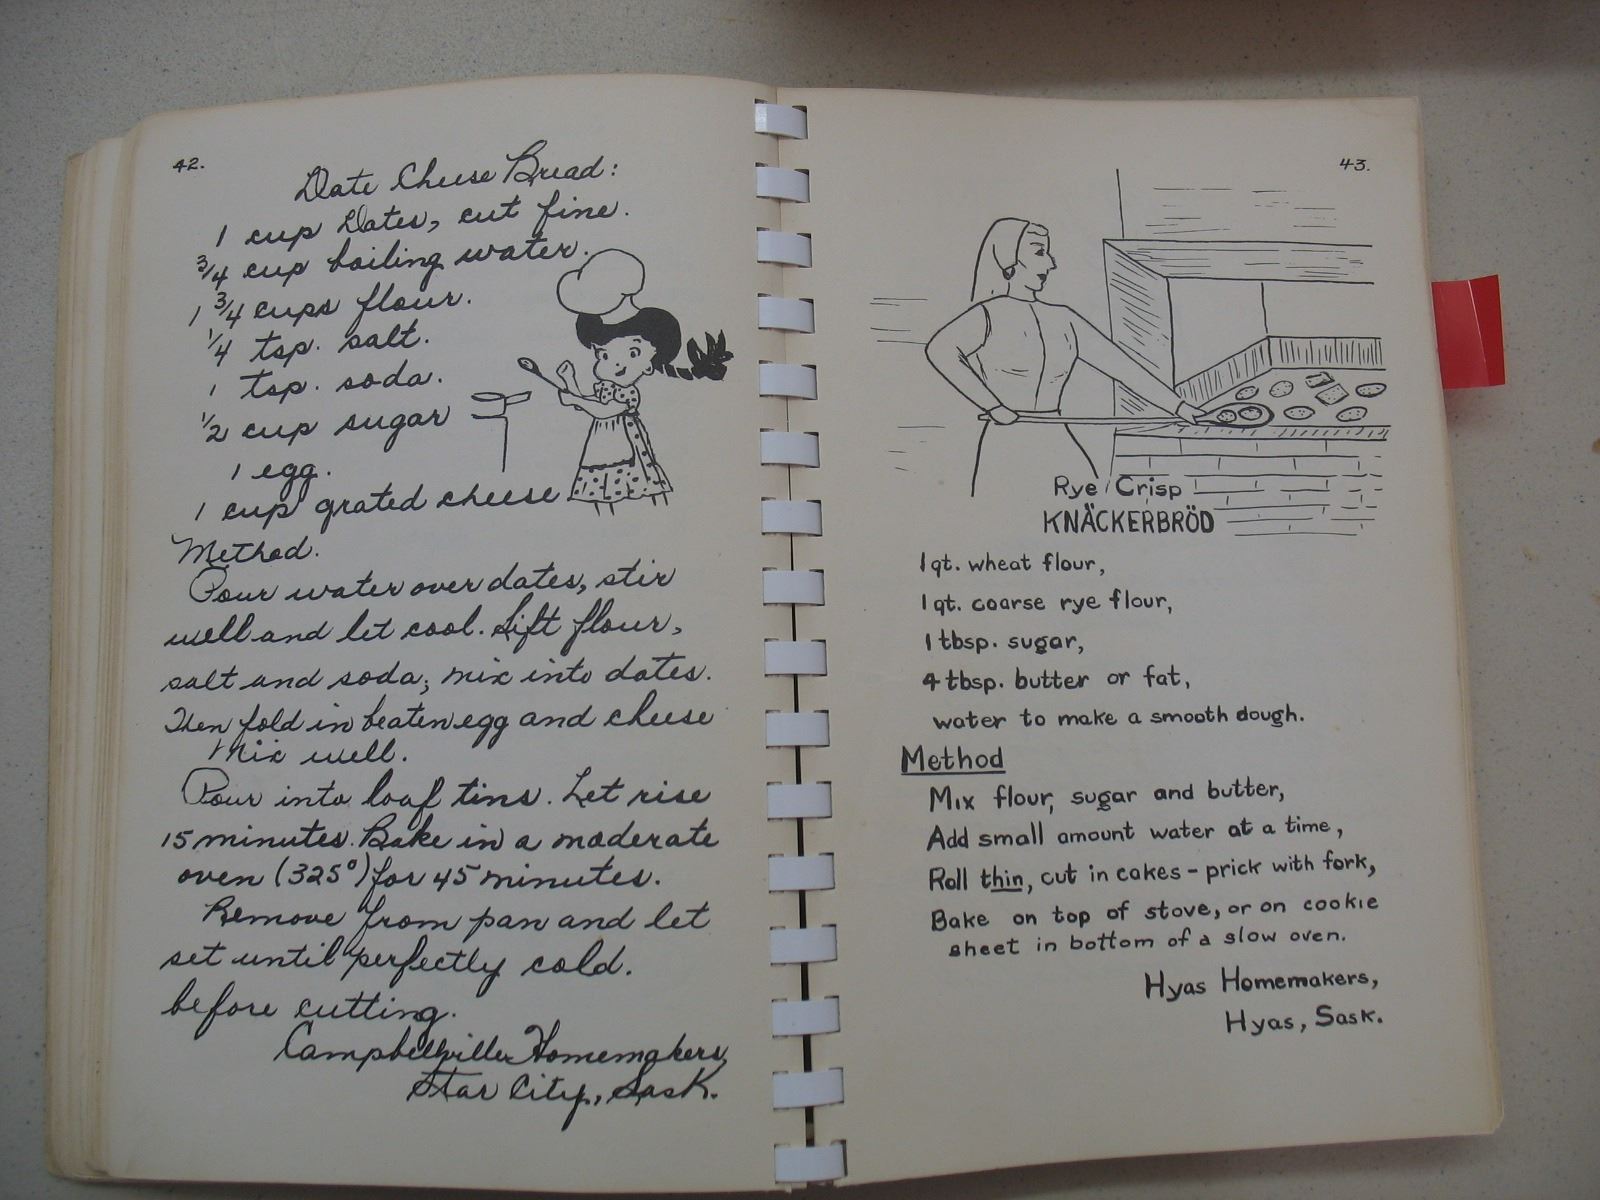 42.
Date Cheese Bread:
1 cup Dates, cut fine.
3/4 cup boiling water.
1 3/4 cups flour.
1/4 tsp. salt.
1 tsp. soda.
1/2 cup sugar
1 egg.
1 cup grated cheese
Method.
Pour water over dates, stir
well and let cool. Sift flour,
salt and soda; mix into dates.
Then fold in beaten egg and cheese
Mix well.
Pour into loaf tins. Let rise
15 minutes. Bake in a moderate
oven (325°) for 45 minutes.
Remove from pan and let
set until perfectly cold.
before cutting.
Campbellville Homemakers,
Star City, Sask.
43.
Rye Crisp
KNÄCKERBRÖD
1 qt. wheat flour,
1 qt. coarse rye flour,
1 tbsp. sugar,
4 tbsp. butter or fat,
water to make a smooth dough.
Method
Mix flour, sugar and butter,
Add small amount water at a time,
Roll thin, cut in cakes - prick with fork,
Bake on top of stove, or on cookie
sheet in bottom of a slow oven.
Hyas Homemakers,
Hyas, Sask.